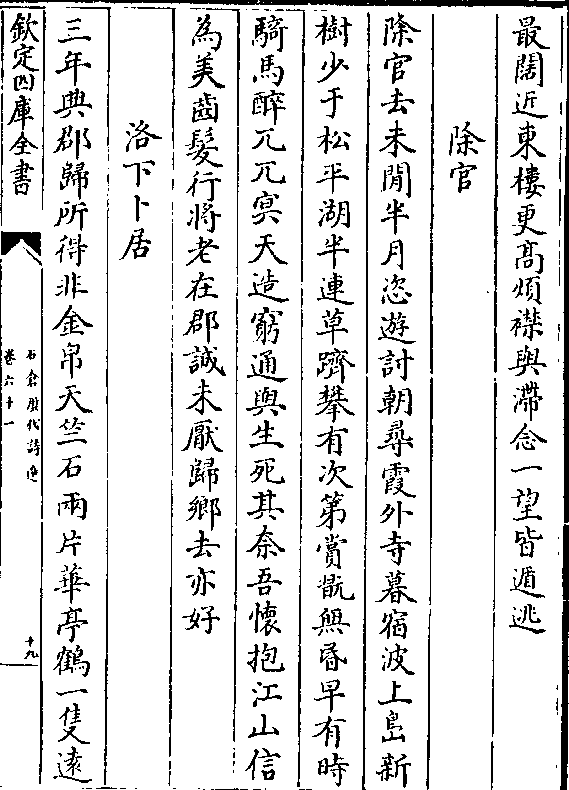 最闊近東樓更髙煩襟與滯念一望皆遁逃
除官
除官去未閒半月恣遊討朝尋霞外寺暮宿波上島新
樹少于松平湖半連草躋攀有次第賞翫無昏早有時
騎馬醉兀兀㝠天造窮通與生死其奈吾懷抱江山信
為美齒髮行將老在郡誠未厭歸鄉去亦好
洛下卜居
三年典郡歸所得非金帛天竺石兩片華亭鶴一隻逺
欽定四庫全書
石倉歷代詩選
卷六十一
十九